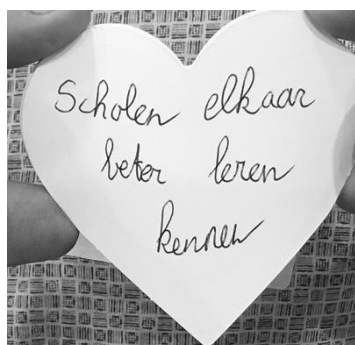 Scholen elkaar
beter leren
kennen